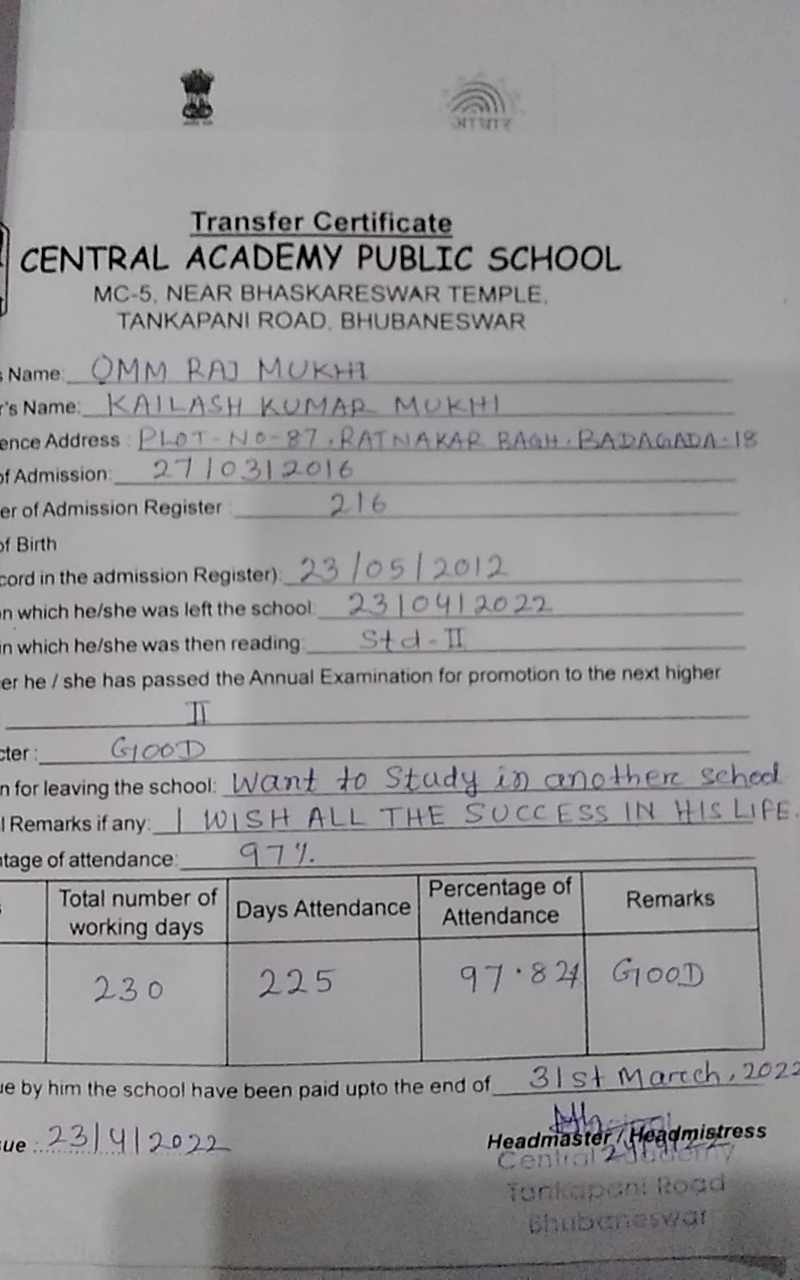 आधार
Transfer Certificate
CENTRAL ACADEMY PUBLIC SCHOOL
MC-5, NEAR BHASKARESWAR TEMPLE,
TANKAPANI ROAD, BHUBANESWAR
s Name: OMM RAJ MUKHI
r's Name: KAILASH KUMAR MUKHI
ence Address : PLOT-NO-87, RATNAKAR BAGH, BADAGADA-18
of Admission: 27/03/2016
er of Admission Register : 216
of Birth
cord in the admission Register): 23/05/2012
n which he/she was left the school: 23/04/2022
in which he/she was then reading: Std-II
er he / she has passed the Annual Examination for promotion to the next higher
II
cter : GOOD
n for leaving the school: Want to Study in another school
l Remarks if any: I WISH ALL THE SUCCESS IN HIS LIFE.
ntage of attendance: 97%
Total number of working days Days Attendance Percentage of Attendance Remarks
230 225 97.82% GOOD
ue by him the school have been paid upto the end of 31st March, 2022
sue : 23/4/2022
Headmaster / Headmistress
Central Academy
Tankapani Road
Bhubaneswar